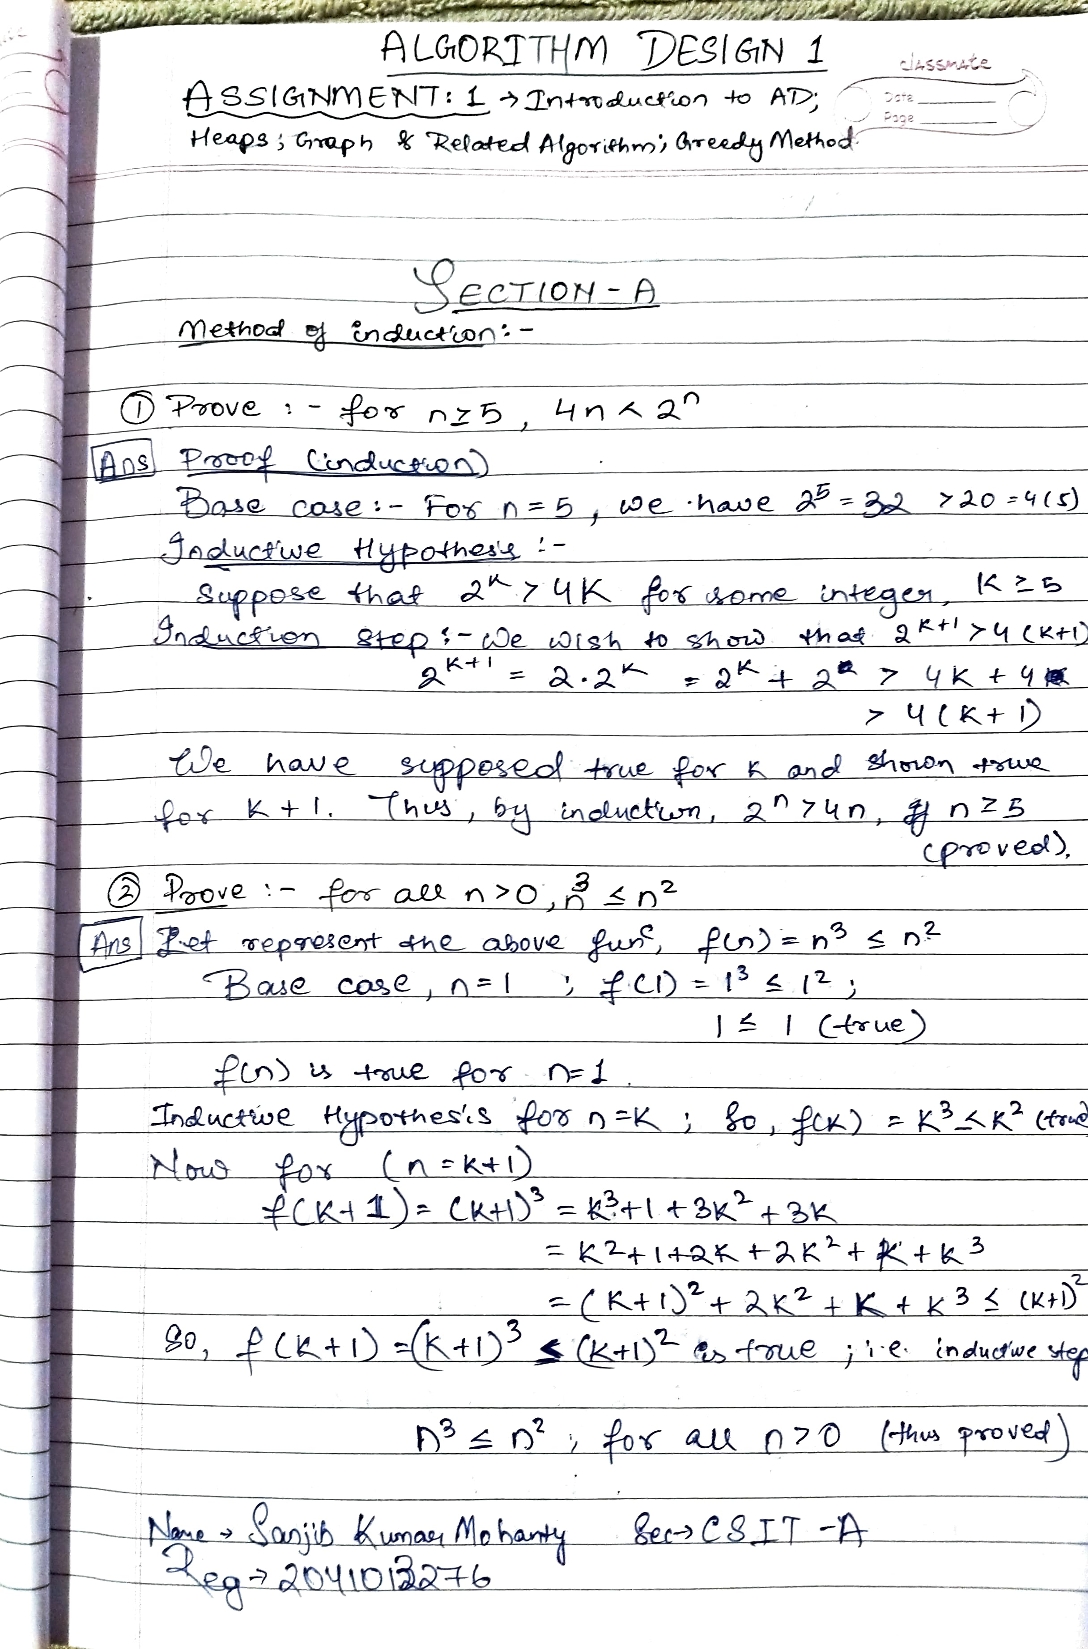 ALGORITHM DESIGN 1
classmate
Date
Page
ASSIGNMENT: 1 → Introduction to AD;
Heaps; Graph & Related Algorithm; Greedy Method.
SECTION - A
Method of induction:-
① Prove :- for n≥5, 4n < 2ⁿ
Ans Proof (induction)
Base case:- For n=5, we have 2⁵ = 32 > 20 = 4(5)
Inductive Hypothesis :-
Suppose that 2ᵏ > 4K for some integer, K ≥ 5
Induction step :- We wish to show that 2ᴷ⁺¹ > 4(K+1)
2ᴷ⁺¹ = 2·2ᴷ = 2ᴷ + 2ᴷ > 4K + 4
> 4(K+1)
We have supposed true for K and shown true
for K+1. Thus, by induction, 2ⁿ > 4n, if n ≥ 5
(proved).
② Prove :- for all n>0, n³ ≤ n²
Ans Let represent the above funᶜ, f(n) = n³ ≤ n²
Base case, n=1 ; f(1) = 1³ ≤ 1² ;
1 ≤ 1 (true)
f(n) is true for n=1.
Inductive Hypothesis for n=K ; So, f(K) = K³ ≤ K² (true)
Now for (n=K+1)
f(K+1) = (K+1)³ = K³+1+3K²+3K
= K²+1+2K+2K²+K+K³
= (K+1)²+2K²+K+K³ ≤ (K+1)²
So, f(K+1) = (K+1)³ ≤ (K+1)² is true ; i.e. inductive step
n³ ≤ n² ; for all n>0 (thus proved)
Name → Sanjib Kumar Mohanty Sec → CSIT - A
Reg →